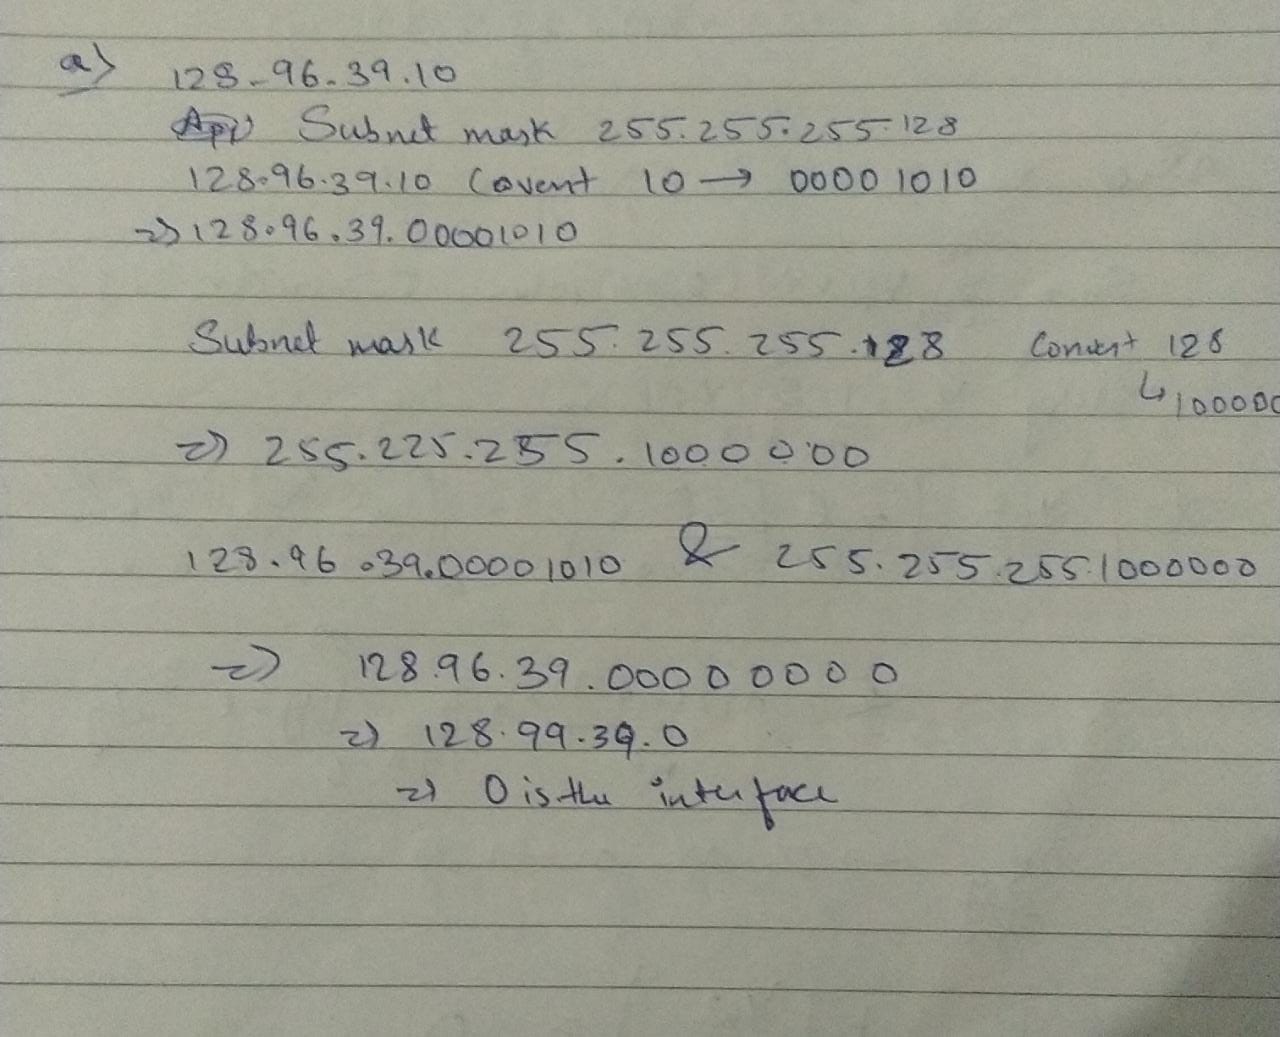 a) 128.96.39.10
Subnet mask 255.255.255.128
128.96.39.10 Covent 10 → 00001010
=> 128.96.39.00001010
Subnet mask 255.255.255.128 Convert 128
↳ 100000
=> 255.225.255.1000000
128.96.39.00001010 & 255.255.255.1000000
=> 128.96.39.00000000
=> 128.99.39.0
=> 0 is the interface